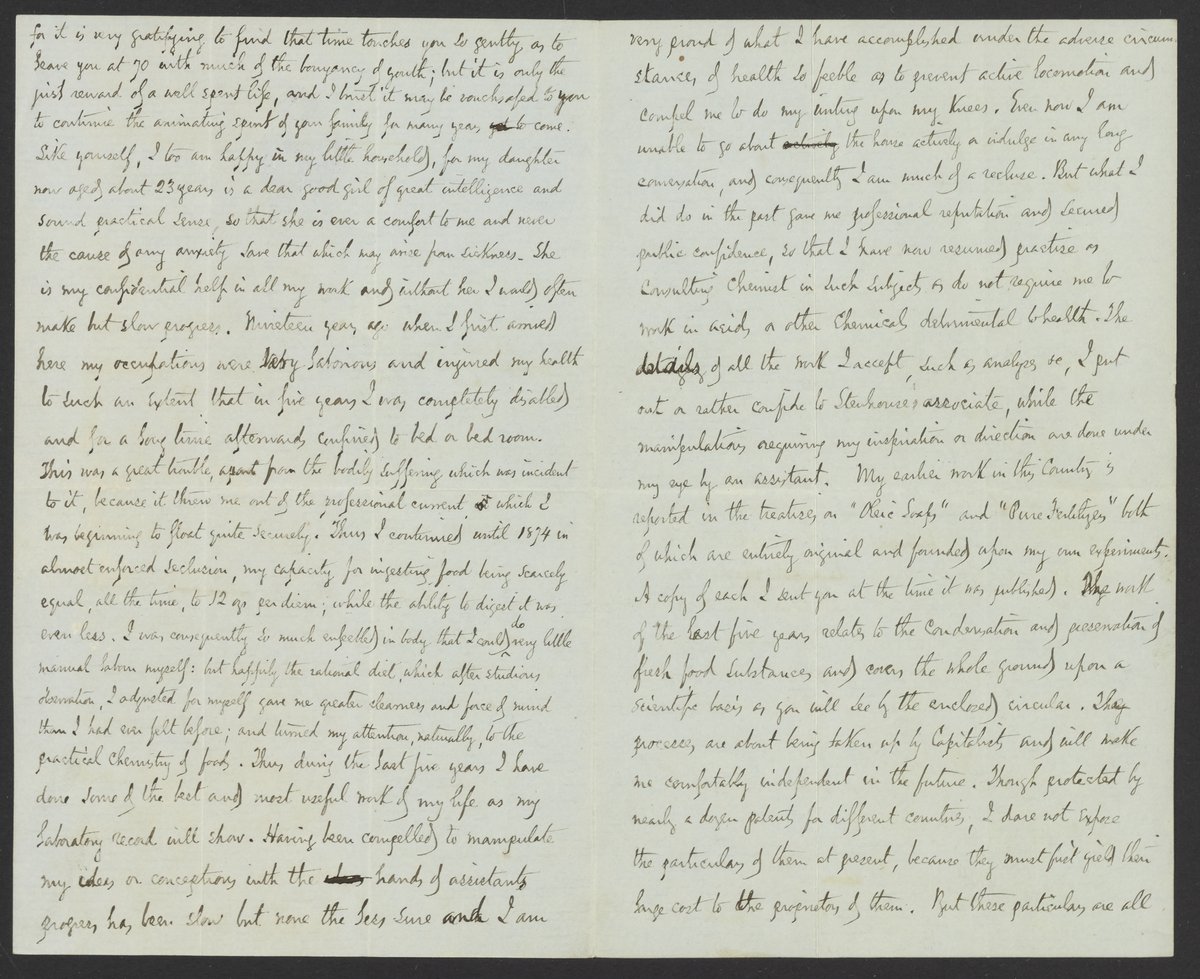 for it is very gratifying to find that time touches you so gently as to
leave you at 70 with much of the bouyancy of youth; but it is only the
just reward of a well spent life, and I trust it may be vouchsafed to you
to continue the animating spirit of your family for many years yet to come.
Like yourself, I too am happy in my little household, for my daughter
now aged about 23 years is a dear good girl of great intelligence and
sound practical sense, so that she is ever a comfort to me and never
the cause of any anxiety save that which may arise from sickness. She
is my confidential help in all my work and without her I would often
make but slow progress. Nineteen years ago when I first arrived
here my occupations were very laborious and injured my health
to such an extent that in five years I was completely disabled
and for a long time afterwards confined to bed or bed room.
This was a great trouble, apart from the bodily suffering which was incident
to it, because it threw me out of the professional current which I
was beginning to float quite securely. Thus I continued until 1874 in
almost enforced seclusion, my capacity for ingesting food being scarcely
equal, all the time, to 12 ozs per diem; while the ability to digest it was
even less. I was consequently so much enfeebled in body that I could do very little
manual labour myself: but happily the rational diet, which after studious
observation, I adjusted for myself gave me greater clearness and force of mind
than I had ever felt before; and turned my attention, naturally, to the
practical Chemistry of foods. Thus during the last five years I have
done some of the best and most useful work of my life as my
laboratory record will show. Having been compelled to manipulate
my ideas or conceptions with the hands of assistants
progress has been slow but none the less sure and I am
very proud of what I have accomplished under the adverse circum
stances of health so feeble as to prevent active locomotion and
compel me to do my writing upon my knees. Even now I am
unable to go about actively the house actively or indulge in any long
conversation, and consequently I am much of a recluse. But what I
did do in the past gave me professional reputation and secured
public confidence, so that I have now resumed practise as
Consulting Chemist in such subjects as do not require me to
work in acids or other Chemicals detrimental to health. The
details of all the work I accept, such as analyses &c, I put
out or rather confide to Stenhouse's associate, while the
manipulations requiring my inspiration or direction are done under
my eye by an assistant. My earlier work in this Country is
reported in the treatises on "Oleic Soaps" and "Pure Fertilizers" both
of which are entirely original and founded upon my own experiments.
A copy of each I sent you at the time it was published. The work
of the last five years relates to the Condensation and preservation of
fresh food substances and covers the whole ground upon a
scientific basis as you will see by the enclosed circular. These
processes are about being taken up by Capitalists and will make
me comfortably independent in the future. Though protected by
nearly a dozen patents for different countries, I dare not expose
the particulars of them at present, because they must first yield their
large cost to the proprietors of them. But these particulars are all